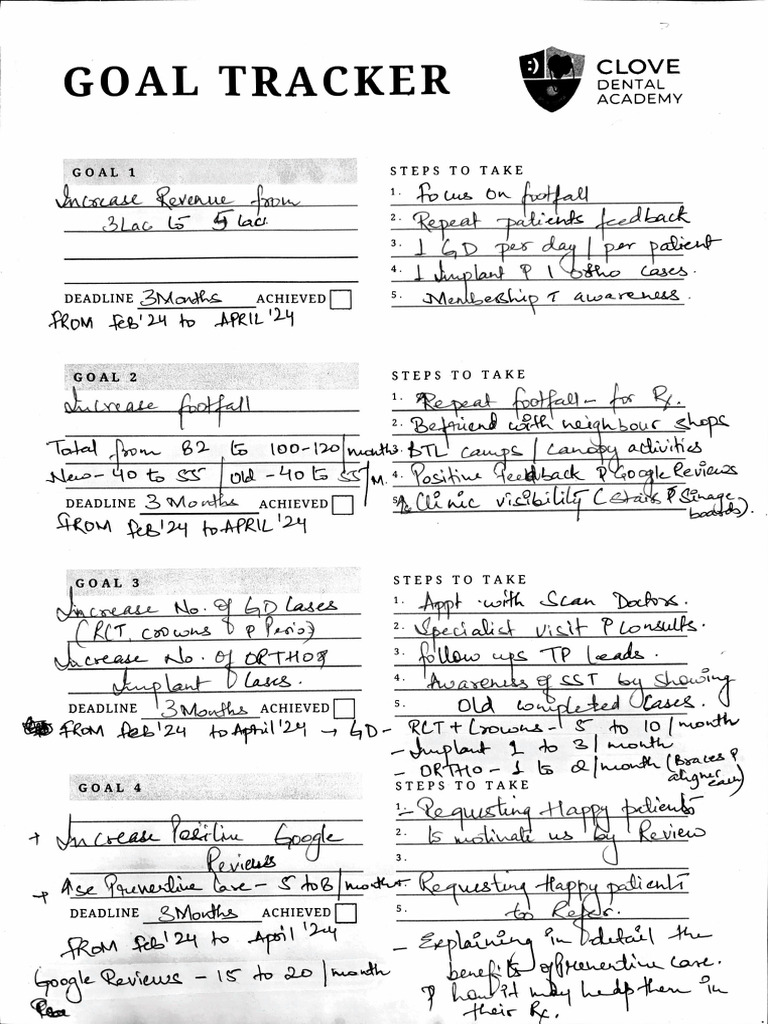 GOAL TRACKER
CLOVE
DENTAL
ACADEMY
GOAL 1
Increase Revenue from
3Lac to 5 lac
DEADLINE 3 Months ACHIEVED
FROM Feb'24 to APRIL '24
STEPS TO TAKE
1. Focus on footfall
2. Repeat patients feedback
3. 1 GD per day / per patient
4. 1 Implant & 1 ortho cases.
5. Membership awareness.
GOAL 2
Increase footfall
Total from 82 to 100-120/month
New-40 to 55/Old-40 to 55/M.
DEADLINE 3 Months ACHIEVED
FROM Feb'24 to APRIL'24
STEPS TO TAKE
1. Repeat footfall - for Rx.
2. Befriend with neighbour shops
3. BTL camps / canopy activities
4. Positive Feedback & Google Reviews
5. ↑ Clinic visibility (Stairs & Sinage
boards).
GOAL 3
Increase No. of GD Cases
(RCT, crowns & Perio)
Increase No. of ORTHO &
Implant Cases.
DEADLINE 3 Months ACHIEVED
FROM Feb'24 to April'24 → GD -
STEPS TO TAKE
1. Appt with Scan Doctors.
2. Specialist visit & Consults.
3. follow ups TP leads.
4. Awareness of SST by showing
5. Old completed Cases.
RCT + Crowns - 5 to 10/month
- Implant 1 to 3/month
- ORTHO - 1 to 2/month (Braces &
aligner
GOAL 4
+ Increase Positive Google
Reviews
+ ↑se Preventive Care - 5 to 8/month
DEADLINE 3 Months ACHIEVED
FROM Feb'24 to April '24
Google Reviews - 15 to 20/month
STEPS TO TAKE
1. - Requesting Happy patients
2. to motivate us by Review
3.
- Requesting Happy patients
5. to Refer.
- Explaining in detail the
benefits of Preventive care.
& how it may help them in
their Rx.